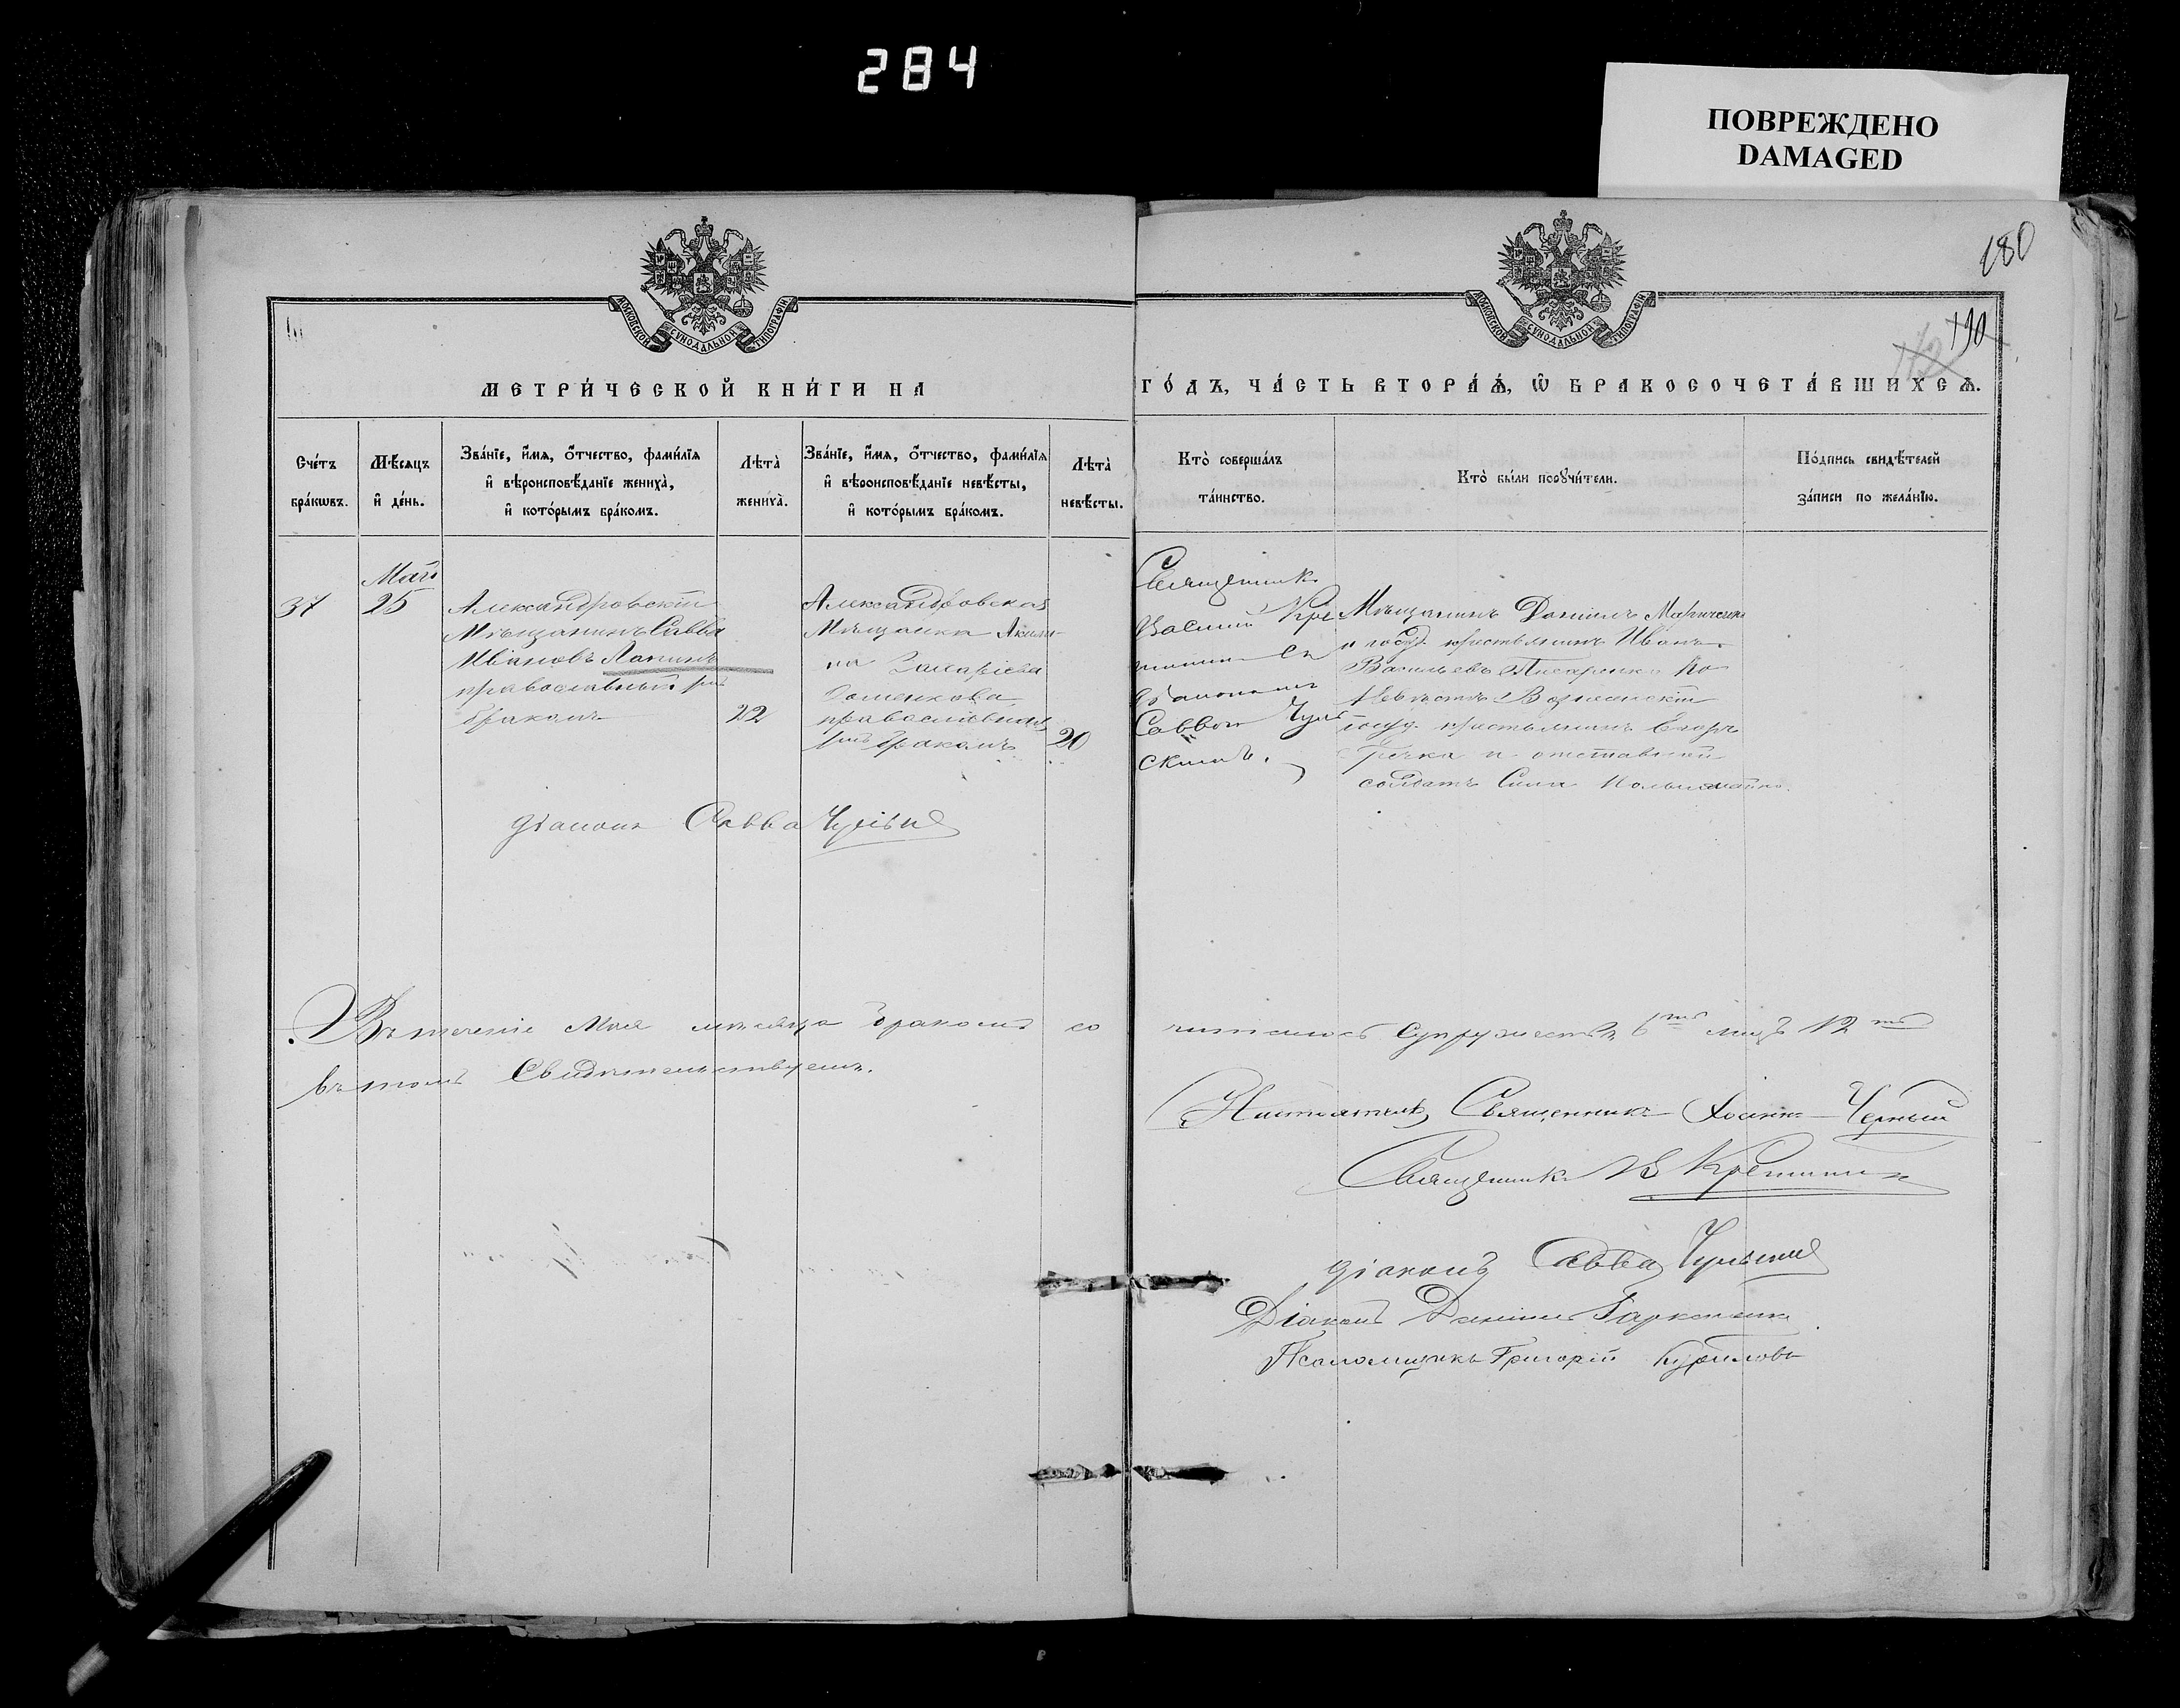 284
ПОВРЕЖДЕНО
DAMAGED
180
190
172
МОСКОВСКОЙ СУНОДАЛЬНОЙ ТИПОГРАФІИ
МОСКОВСКОЙ СУНОДАЛЬНОЙ ТИПОГРАФІИ
МЕТРИ́ЧЕСКОЙ КНИ́ГИ НА ГО́ДЪ, ЧА́СТЬ ВТОРА́Ѧ, Ѡ БРАКОСОЧЕТА́ВШИХСѦ.
Сче́тъ бра́кѡвъ.
Мѣ́сяцъ и де́нь.
Зва́нїе, и́мѧ, о́тчество, фами́лїѧ и вѣроисповѣ́данїе жениха̀, и кото́рымъ бра́комъ.
Лѣта̀ жениха̀.
Зва́нїе, и́мѧ, о́тчество, фами́лїѧ и вѣроисповѣ́данїе невѣ́сты, и кото́рымъ бра́комъ.
Лѣта̀ невѣ́сты.
Кто̀ соверша́лъ та́инство.
Кто̀ бы́ли порꙋчи́тели.
По́дпись свидѣ́телей за́писи по жела́нїю.
Май
37
25
Александровскій
Мѣщанинъ Савва
Ивановъ Лапинъ
православный. рмъ
бракомъ
22
Александровская
Мѣщанка Акили-
на Захаріева
православная
рмъ бракомъ
20
Священникъ
Василій Кре
съ
Діакономъ
Саввою Чуль
скимъ.
Мѣщанинъ Даніилъ
и госуд. крестьянинъ Иванъ
Васильевъ По
Невѣстѣ Вознесенскій
госуд. крестьянинъ Егоръ
Гречка и отставной
солдатъ Сила
Діаконъ Савва Чульскій
Въ теченіе Мая мѣсяца бракомъ со
читалось супружествъ 6ть лицъ 12ть
въ томъ Свидѣтельствуемъ.
Настоятель, Священникъ Іоаннъ Черный
Священникъ В Крешинъ
Діаконъ Савва Чульскій
Діаконъ Даніилъ
Псаломщикъ Григорій Куриловъ